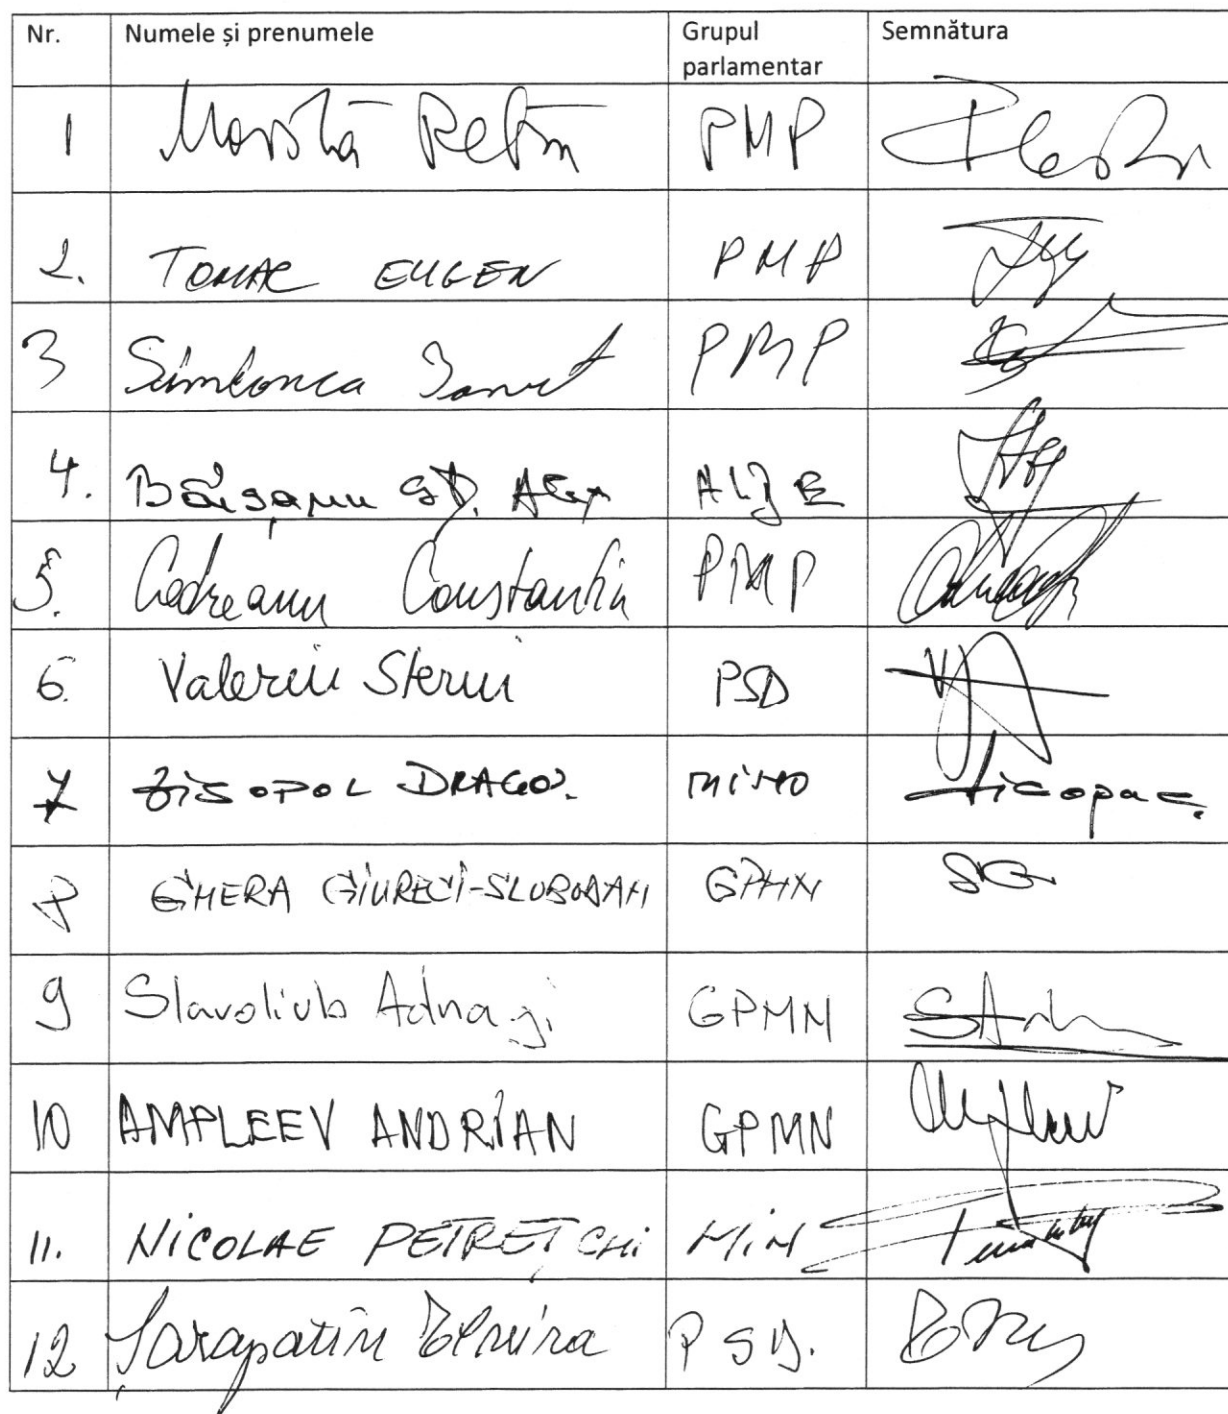 Nr. Numele și prenumele Grupul parlamentar Semnătura
1 Movilă Petru PMP
2. TOMAC EUGEN PMP
3 Simionca Ionuț PMP
4. Băișanu Șt. Alex ALDE
5. Codreanu Constantin PMP
6. Valeriu Steriu PSD
7 Zisopol DRAGOȘ. MINO
8 GHERA GIURECI-SLOBODAN GPMN
9 Slavoliub Adnagi GPMN
10 AMPLEEV ANDRIAN GPMN
11. NICOLAE PETREȚCHI MIN
12 Șarapatin Elvira PSD.